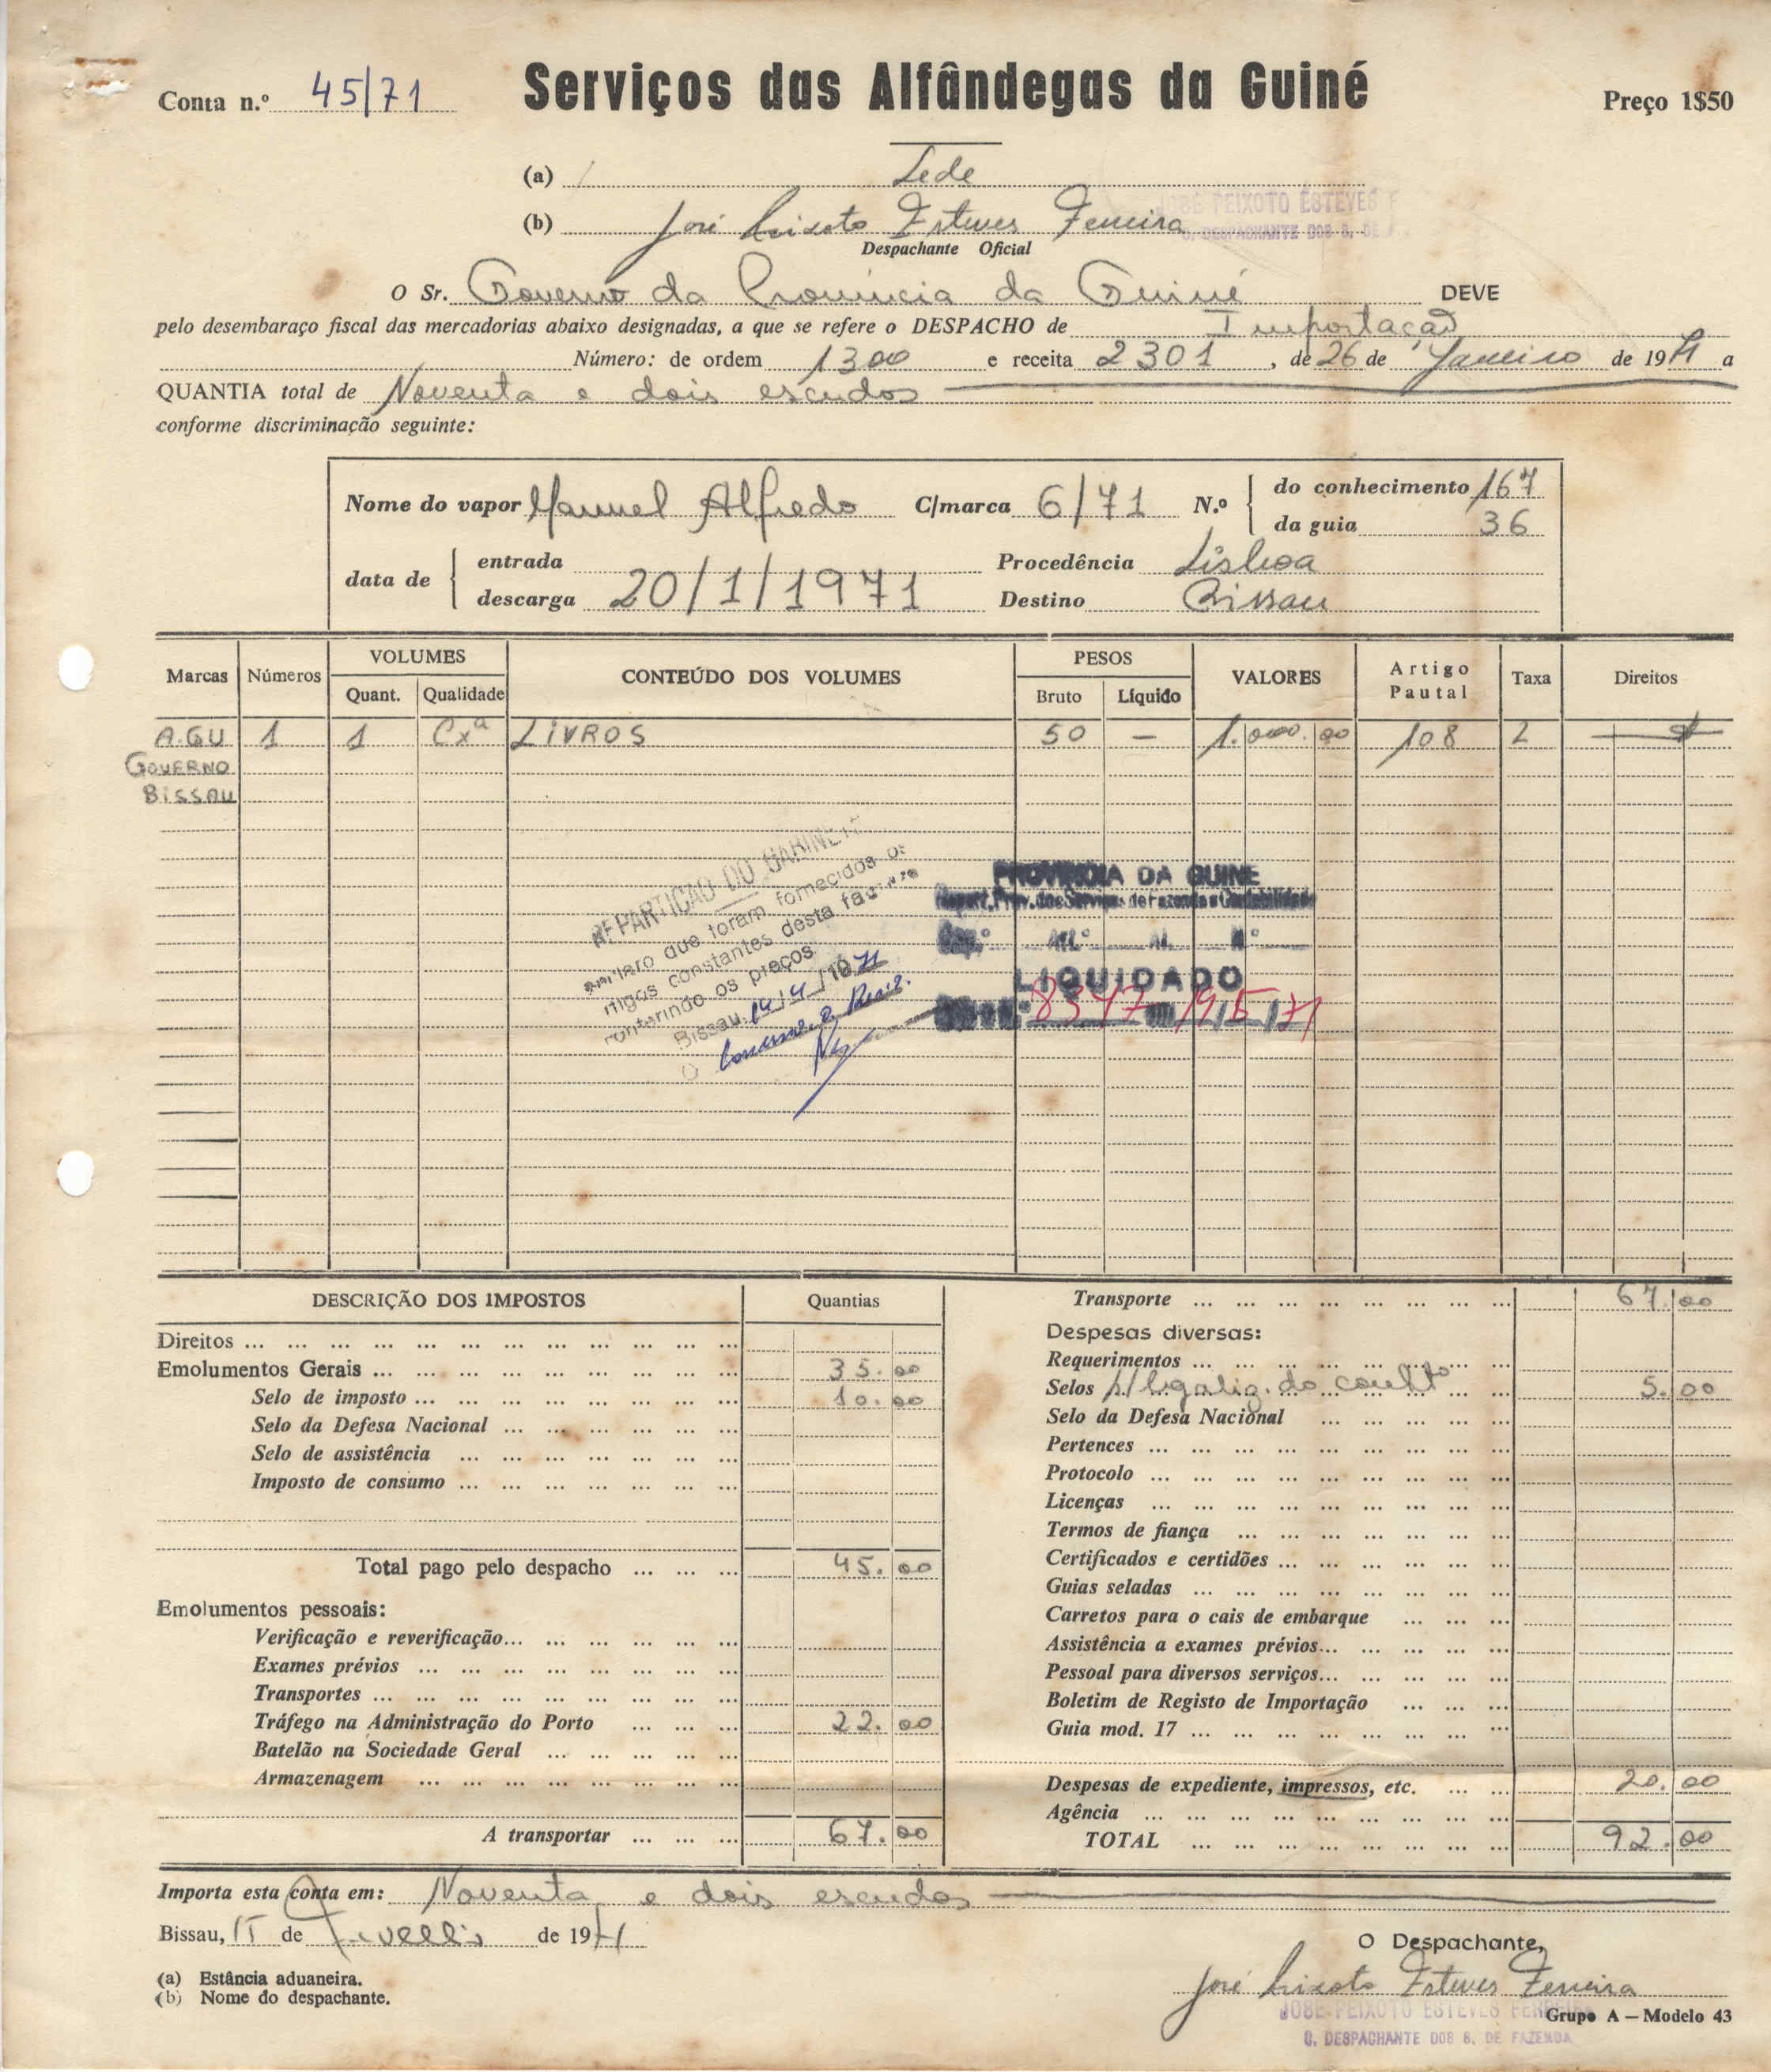 Conta n.º 45/71
Serviços das Alfândegas da Guiné
Preço 1$50
(a) Sede
(b) José Peixoto Esteves Ferreira
JOSÉ PEIXOTO ESTEVES F
DESPACHANTE DOS S. DE
Despachante Oficial
O Sr. Governo da Província da Guiné DEVE
pelo desembaraço fiscal das mercadorias abaixo designadas, a que se refere o DESPACHO de Importação
Número: de ordem 1300 e receita 2301, de 26 de Janeiro de 1971 a
QUANTIA total de Noventa e dois escudos
conforme discriminação seguinte:
Nome do vapor Manuel Alfredo C/marca 6/71 N.º do conhecimento 167
da guia 36
data de entrada Procedência Lisboa
descarga 20/1/1971 Destino Bissau
Marcas Números VOLUMES CONTEÚDO DOS VOLUMES PESOS VALORES Artigo Pautal Taxa Direitos
Quant. Qualidade Bruto Líquido
A.GU 1 1 Cxª LIVROS 50 — 1.000.00 108 2 $
GOVERNO
BISSAU
REPARTIÇÃO DO GABINETE
que foram fornecidos os
artigos constantes desta factura
conferindo os preços
Bissau, 14/4/1971
O
PROVINCIA DA GUINE
Repart. Prov. dos Serviços de Fazenda e Contabilidade
Cap.º Art.º Al. N.º
LIQUIDADO
8347 19/5/71
DESCRIÇÃO DOS IMPOSTOS Quantias
Direitos ...
Emolumentos Gerais ... 35.00
Selo de imposto ... 10.00
Selo da Defesa Nacional ...
Selo de assistência ...
Imposto de consumo ...
Total pago pelo despacho ... 45.00
Emolumentos pessoais:
Verificação e reverificação...
Exames prévios ...
Transportes ...
Tráfego na Administração do Porto ... 22.00
Batelão na Sociedade Geral ...
Armazenagem ...
A transportar ... 67.00
Transporte ... 67.00
Despesas diversas:
Requerimentos ...
Selos p/ legaliz. do conhtº 5.00
Selo da Defesa Nacional ...
Pertences ...
Protocolo ...
Licenças ...
Termos de fiança ...
Certificados e certidões ...
Guias seladas ...
Carretos para o cais de embarque ...
Assistência a exames prévios...
Pessoal para diversos serviços...
Boletim de Registo de Importação ...
Guia mod. 17 ...
Despesas de expediente, impressos, etc. ... 20.00
Agência ...
TOTAL ... 92.00
Importa esta conta em: Noventa e dois escudos
Bissau, 15 de de 1971
O Despachante,
José Peixoto Esteves Ferreira
(a) Estância aduaneira.
(b) Nome do despachante.
JOSE PEIXOTO ESTEVES FERREIRA
Grupo A — Modelo 43
C. DESPACHANTE DOS S. DE FAZENDA